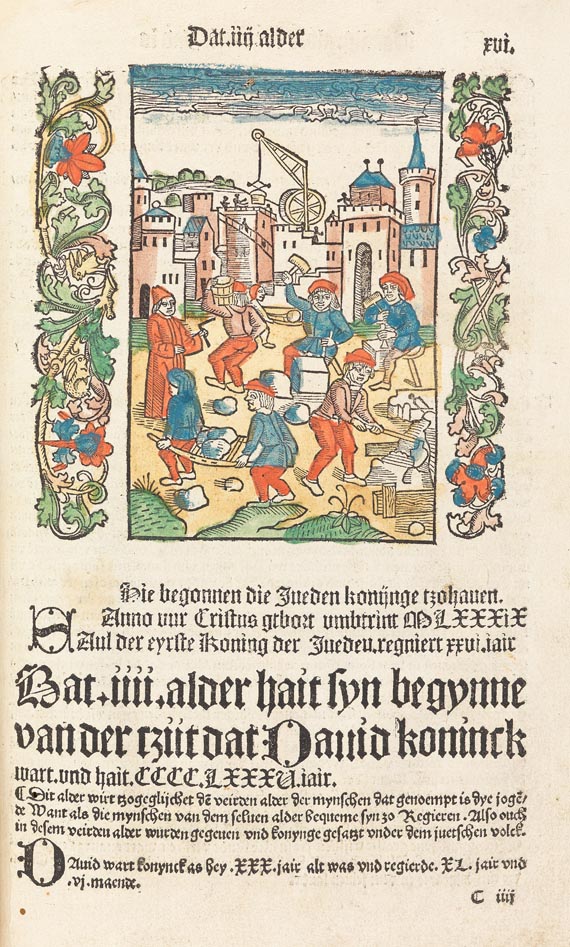 Dat.iiij.alder
xvi.
Hie begonnen die Jueden konijnge tzohauen.
Anno vur Cristus gebort vmbtrint MLXXXIX
SAul der eyrste Koning der Jueden.regniert xxvi.iair
Dat.iiii.alder hait syn begynne
van der tzijt dat Dauid koninck
wart.vnd hait.CCCC.LXXXV.iair.
¶ Dit alder wirt tzogeglijchet dē veirden alder der mynschen dat genoempt is dye jogē/
de Want als die mynschen van dem seluen alder bequeme syn zo Regieren. Also ouch
in desem veirden alder wurden gegeuen vnd konynge gesatzt vnder dem juetschen volck.
DAuid wart konynck as hey .XXX. jair alt was vnd regierde. XL. jair vnd
.vj. maende.
C iiij